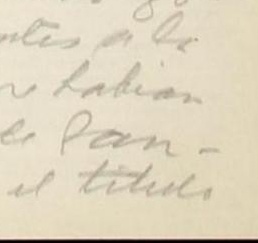 ntes a la
habian
de San-
el titulo